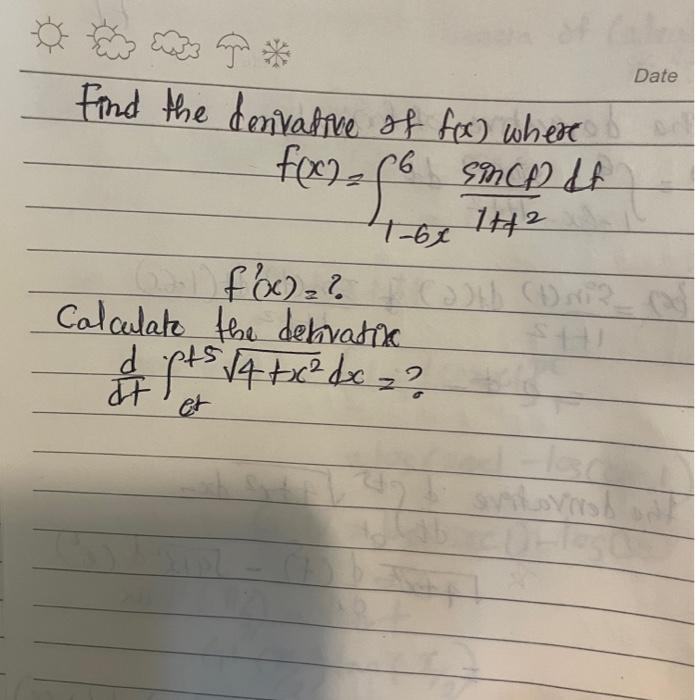 Date
Find the derivative of f(x) where
f(x) = ∫_{1-6x}^{6} sin(t) dt / 1+t²
f'(x) = ?
Calculate the derivative
d/dt ∫_{et}^{t5} √4+x² dx = ?